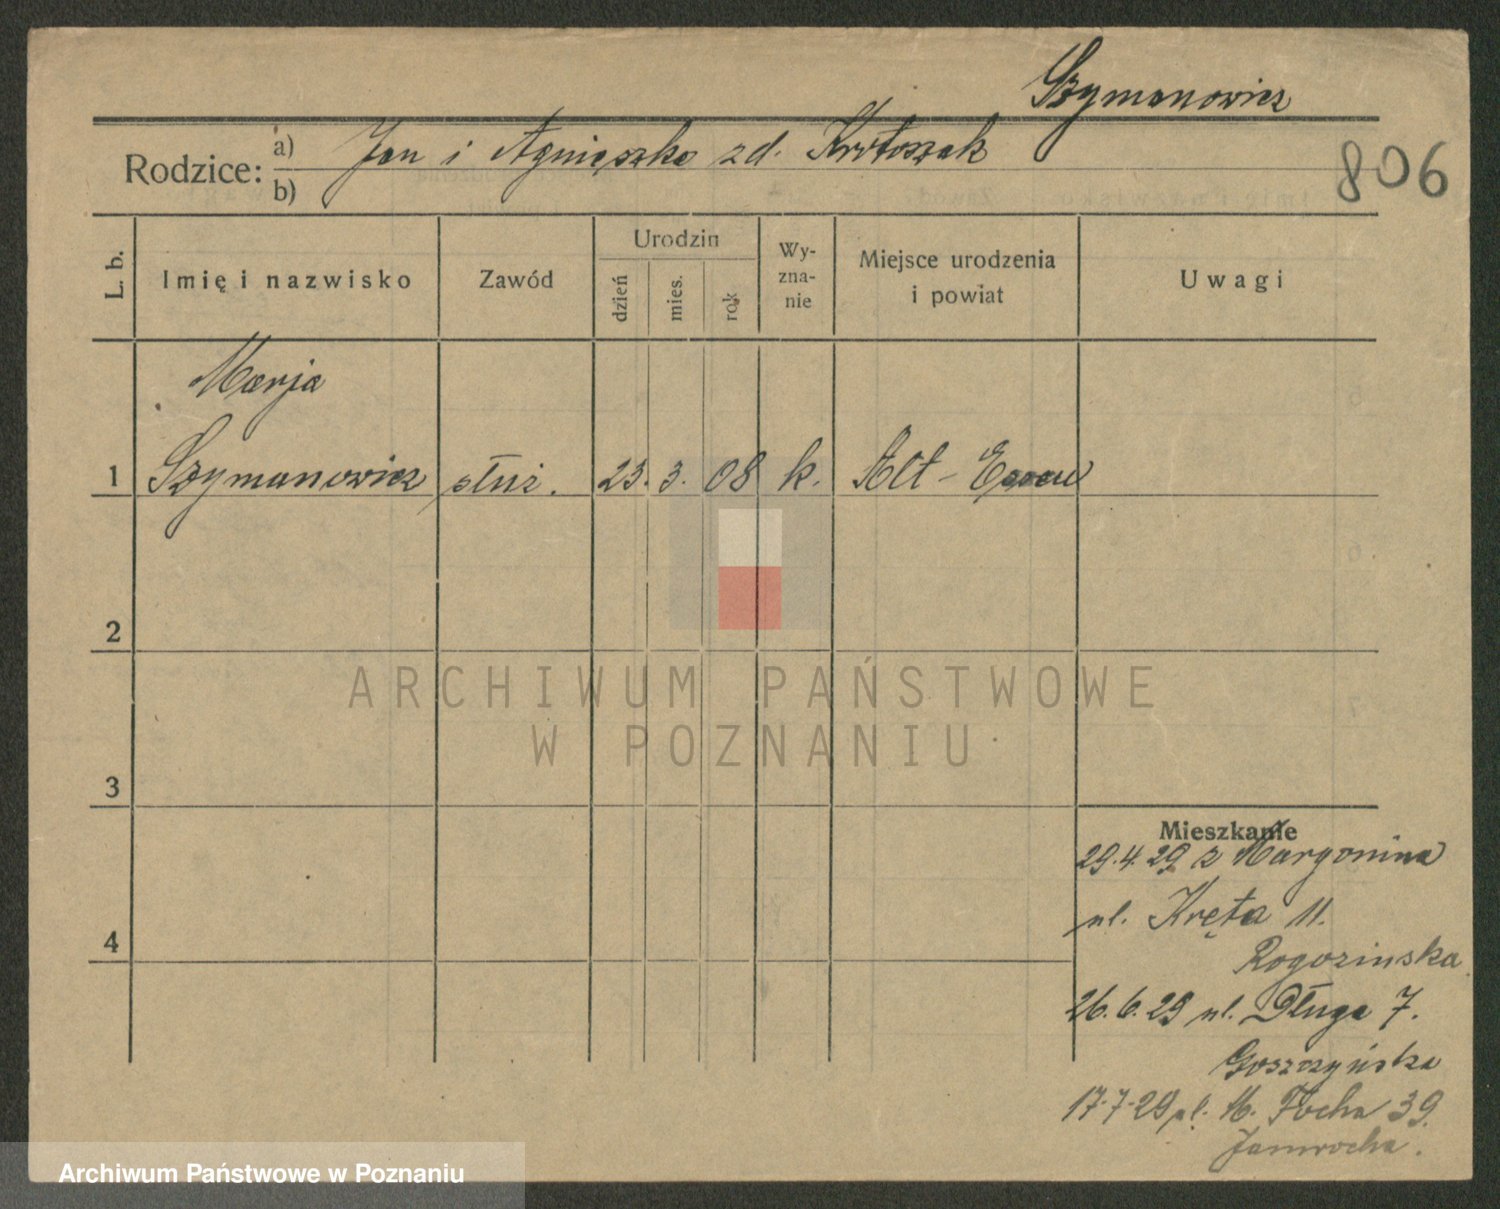 Szymanowicz
Rodzice: a) Jan i Agnieszka zd. Krotoszak
b)
806
L. b.
Imię i nazwisko
Zawód
Urodzin
dzień
mies.
rok
Wy-
zna-
nie
Miejsce urodzenia
i powiat
Uwagi
Marja
1 Szymanowicz służ. 23. 3. 08 k. Alt-
2
3
4
Mieszkanie
29.4.29 z Margonina
ul. Kręta 11.
Rogozinska
26.6.29 ul. Długa 7.
Goszczyńska
17.7.29 ul. M. Focha 39.
ARCHIWUM PAŃSTWOWE
W POZNANIU
Archiwum Państwowe w Poznaniu